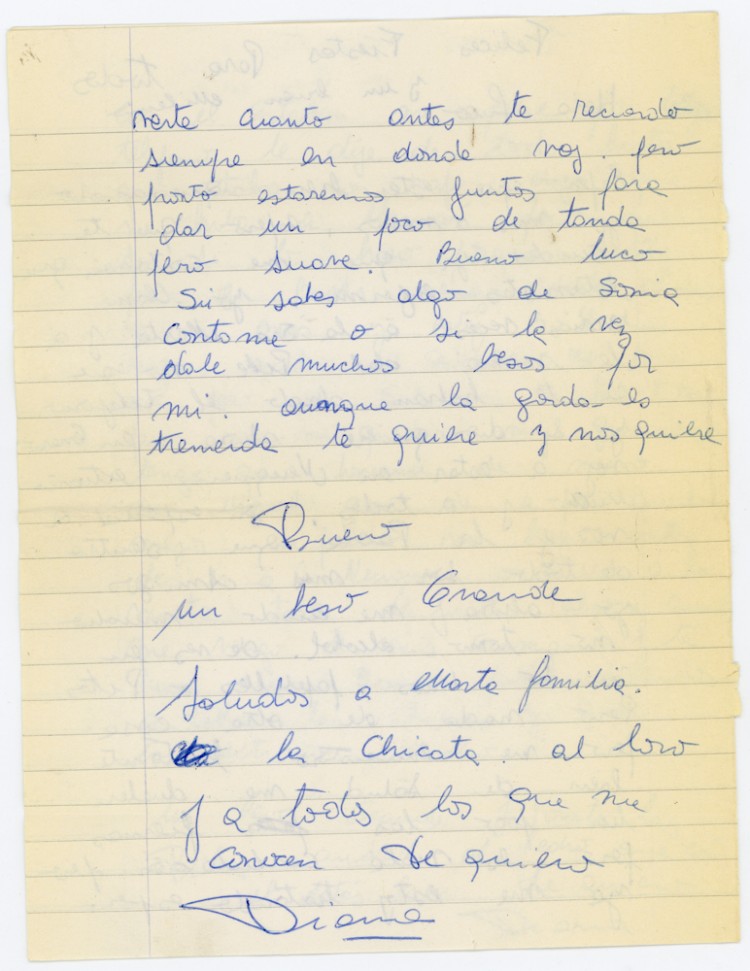 verte cuanto antes te recuerdo
siempre en donde voy. pero
pronto estaremos juntos para
dar un poco de tanda
pero suave. Bueno luco
Si sabes algo de Sonia
Contame o si la vez
dale muchos besos por
mi. aunque la gorda es
tremenda te quiere y nos quiere
Bueno
un beso Grande
Saludos a Marta familia.
la Chicata. al loro
y a todos los que me
conocen te quiero
Diana